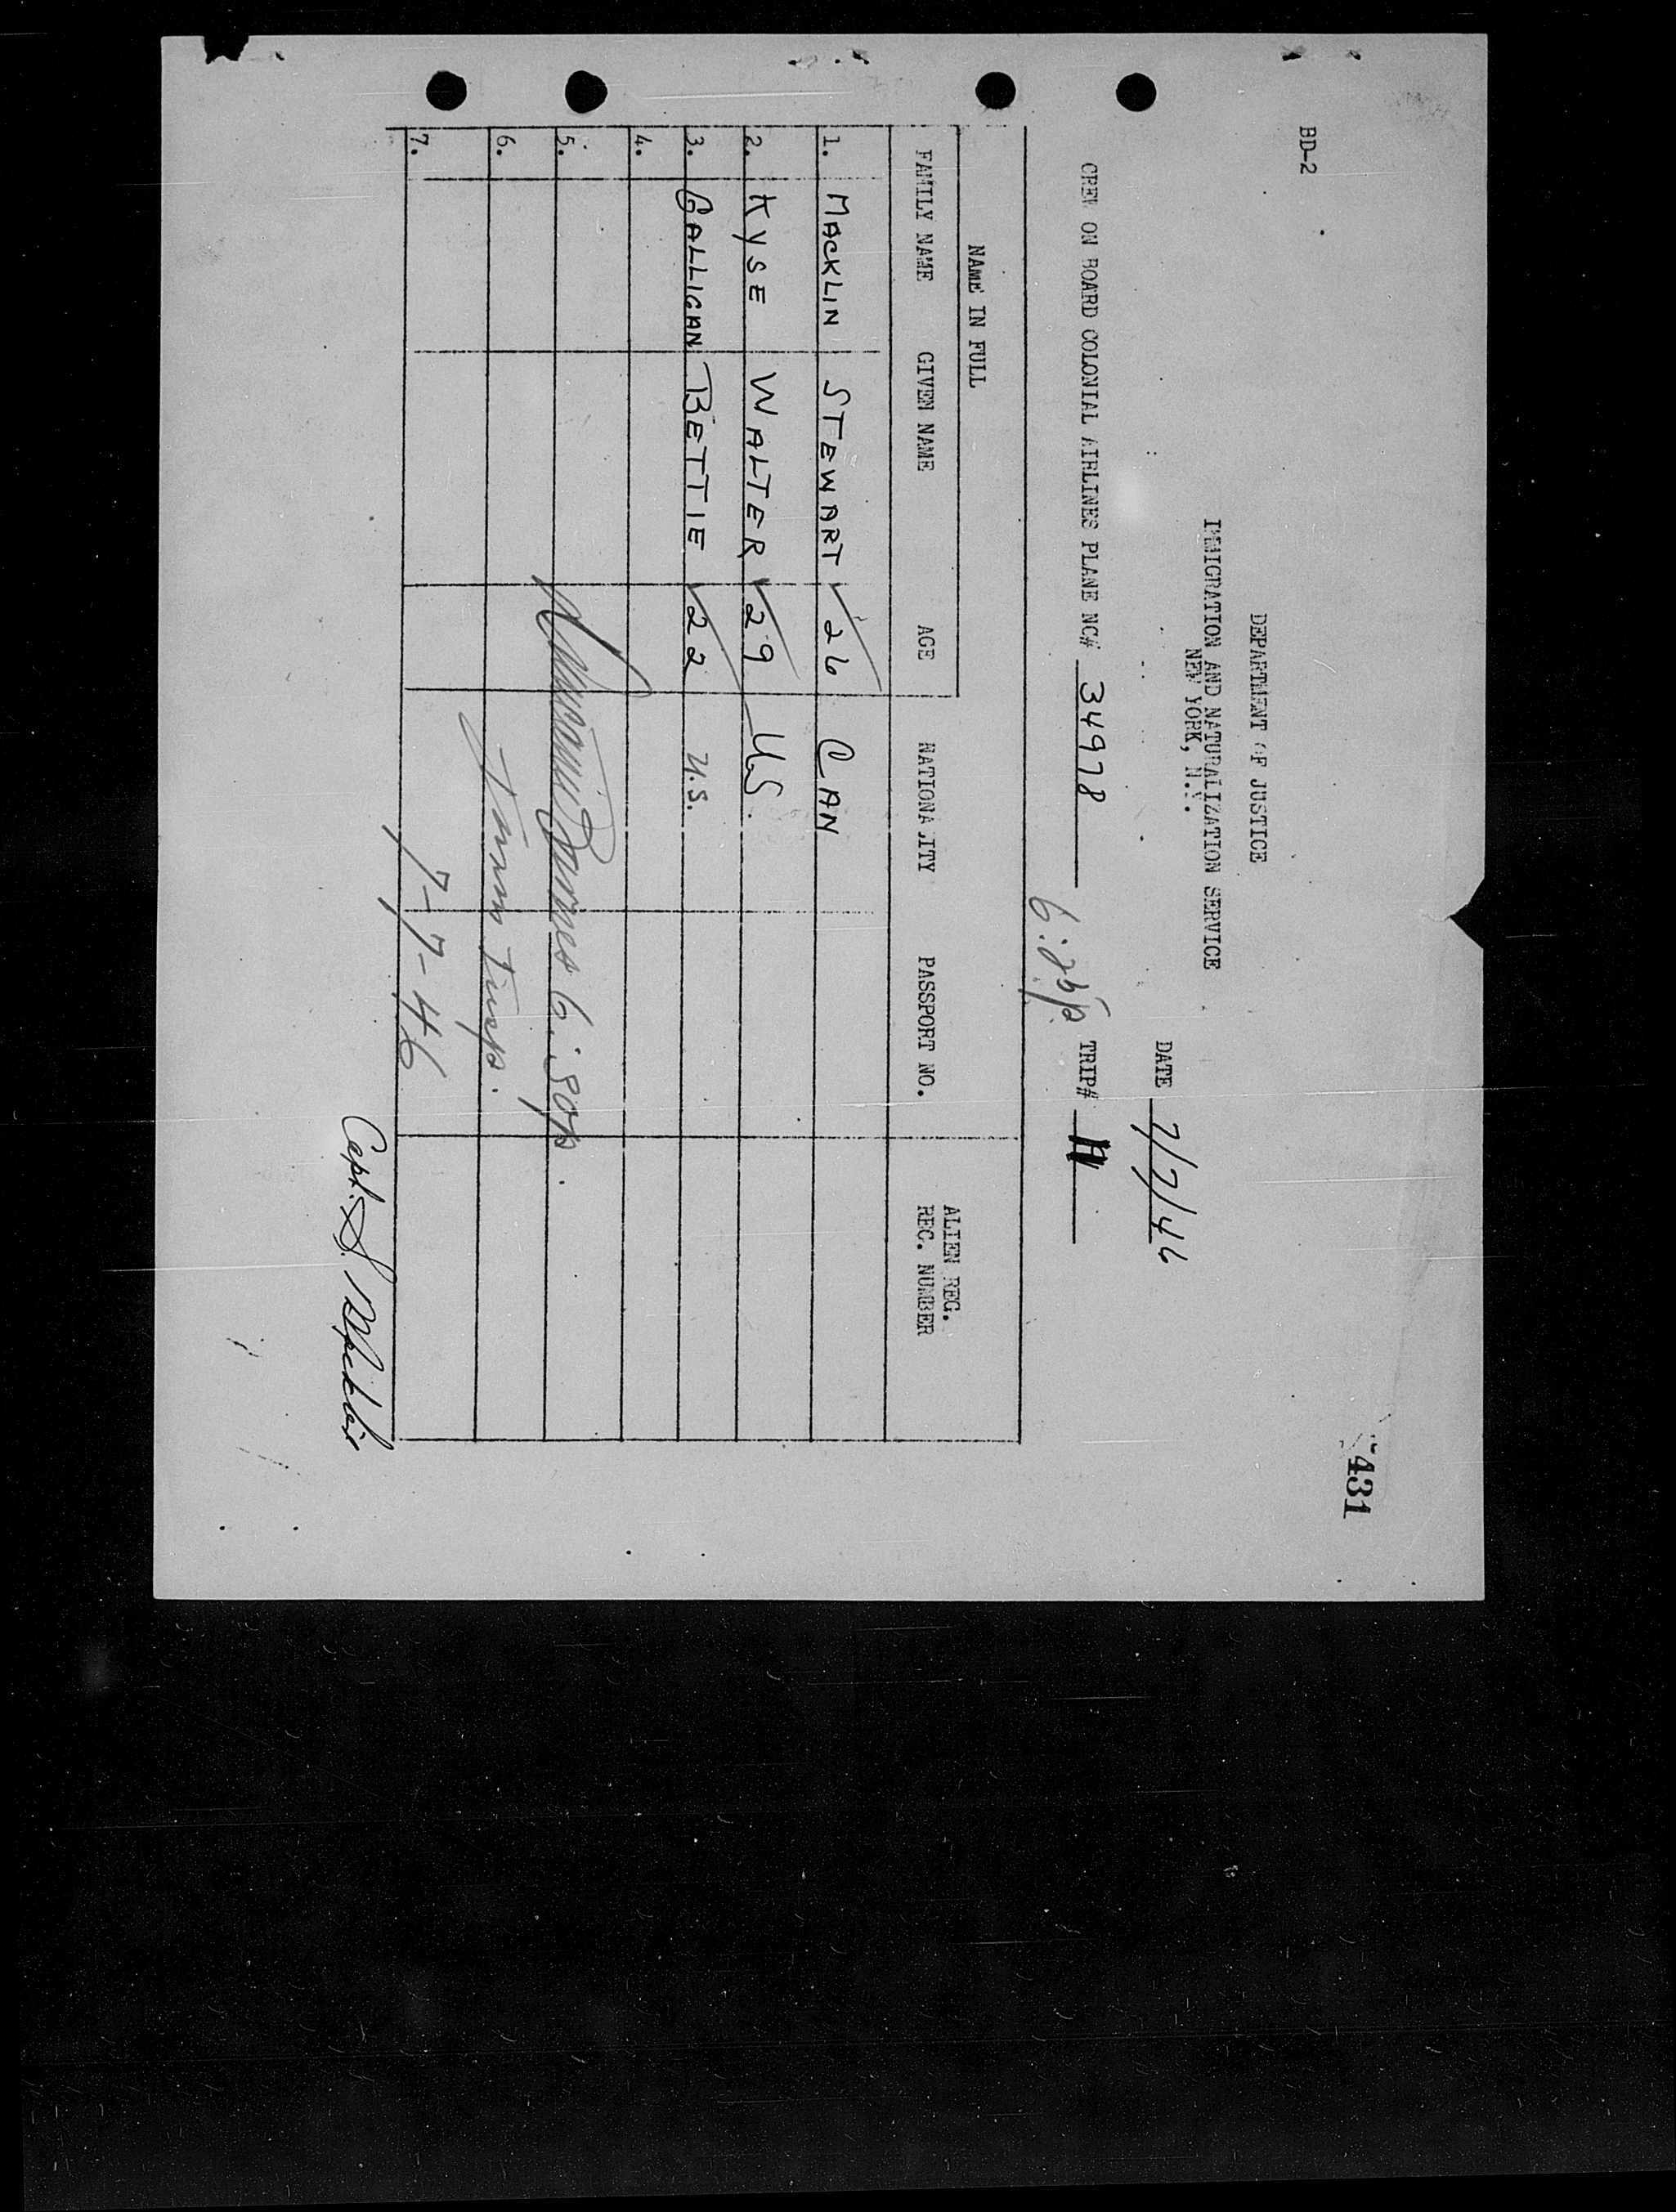 431
BD-2
DEPARTMENT OF JUSTICE
IMMIGRATION AND NATURALIZATION SERVICE
NEW YORK, N.Y.
DATE 7/7/46
CREW ON BOARD COLONIAL AIRLINES PLANE NC# 34978 TRIP#
NAME IN FULL
ALIEN REG.
FAMILY NAME GIVEN NAME AGE NATIONALITY PASSPORT NO. REC. NUMBER
1. MACKLIN STEWART 26 CAN
2. KYSE WALTER 29 US.
3. GALLIGAN BETTIE 22 U.S.
4.
5. Barnes
6. Imm Insp.
7. 7-7-46
Capt. S. Macklin